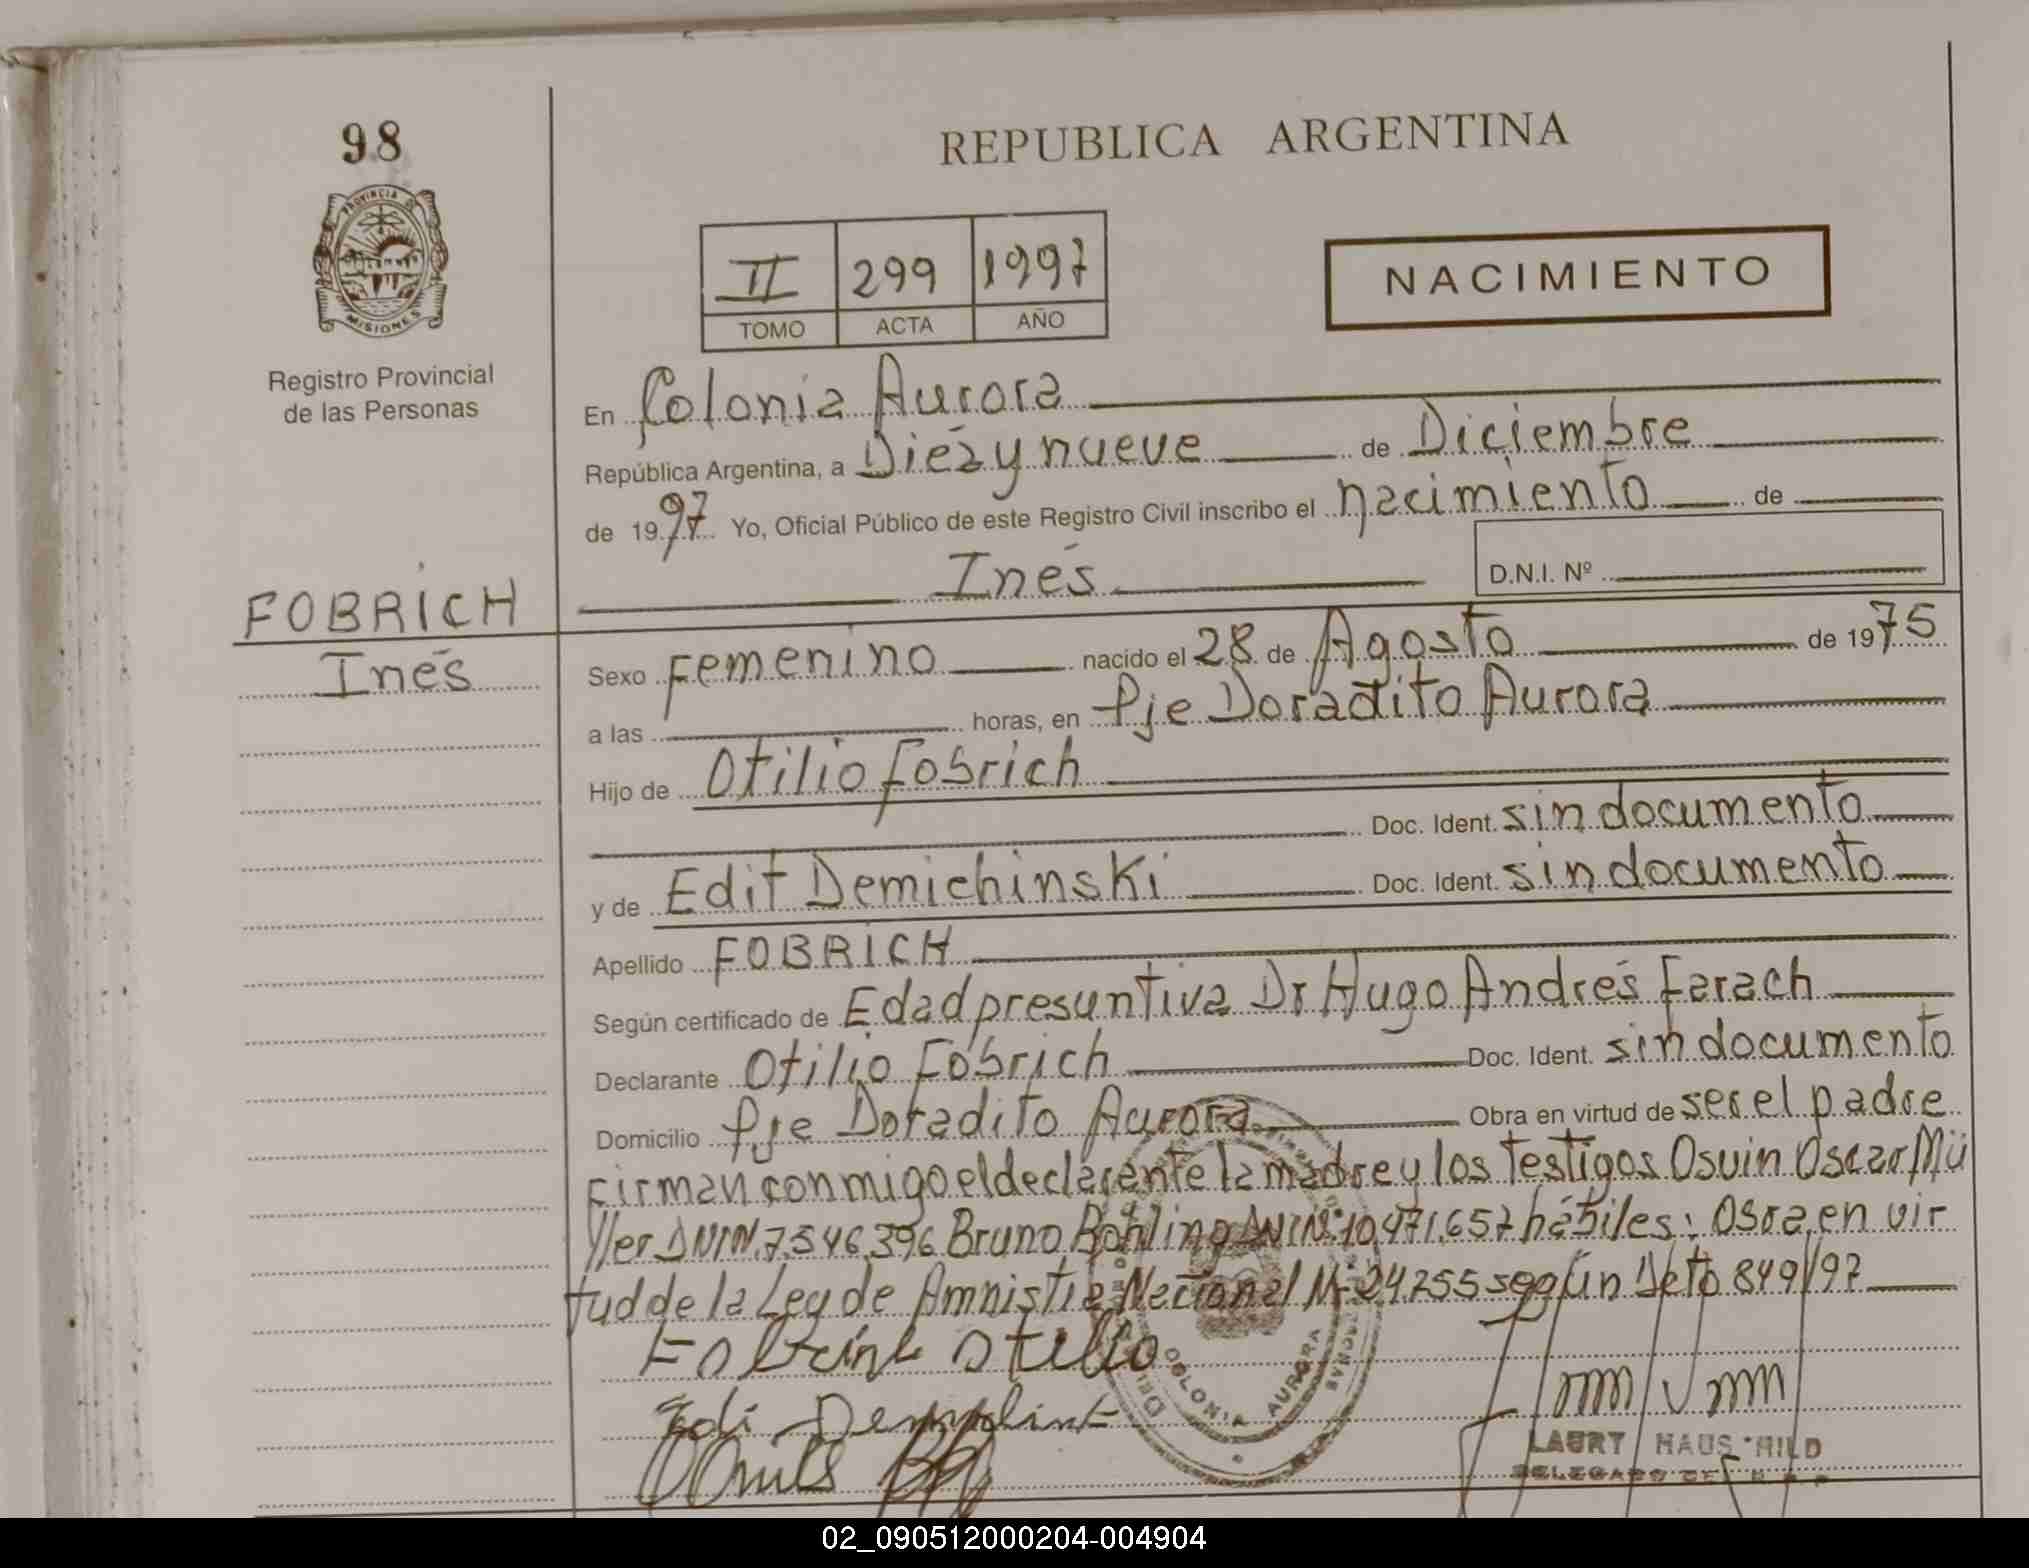 98
REPUBLICA ARGENTINA
PROVINCIA DE
MISIONES
II 299 1997
TOMO ACTA AÑO
NACIMIENTO
Registro Provincial
de las Personas
En Colonia Aurora
República Argentina, a Diézynueve de Diciembre
de 1997 Yo, Oficial Público de este Registro Civil inscribo el nacimiento de
Inés D.N.I. Nº
FOBRICH
Inés
Sexo Femenino nacido el 28 de Agosto de 1975
a las horas, en Pje Doradito Aurora
Hijo de Otilio Fobrich
Doc. Ident. sin documento
y de Edit Demichinski Doc. Ident. sin documento
Apellido FOBRICH
Según certificado de Edad presuntiva Dr Hugo Andrés Farach
Declarante Otilio Fobrich Doc. Ident. sin documento
Domicilio Pje Doradito Aurora Obra en virtud de ser el padre
Firman conmigo el declarante la madre y los testigos Osvin Oscar Mü
ller DNIN 7.546.396 Bruno Bohling DNINº 10.471.657 hábiles: Obra en vir
tud de la Ley de Amnistia Nacional Nº 24.755 según Dcto 849/97
Otilio
COLONIA AURORA
LAURY HAUS HILD
DELEGADO DE
02_090512000204-004904